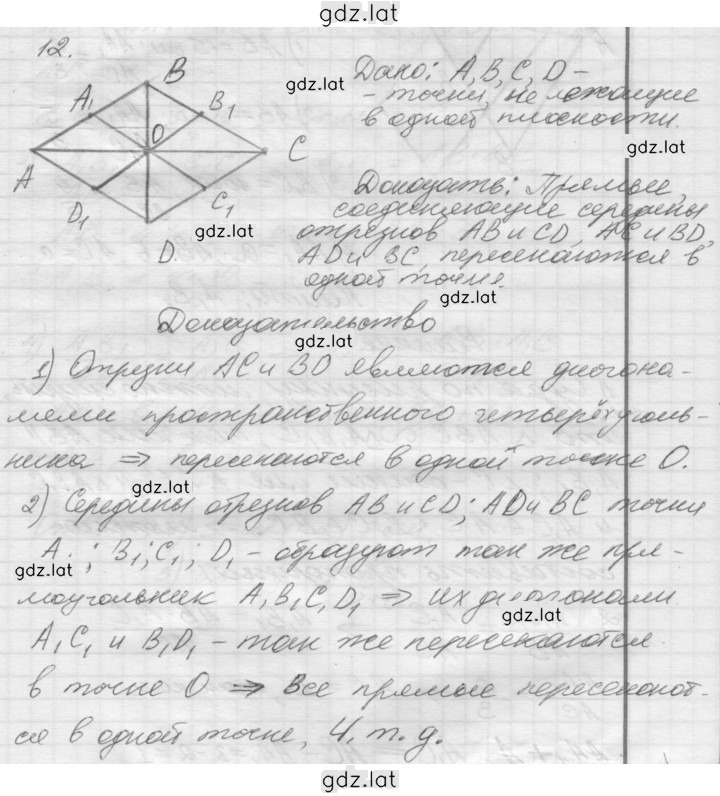 gdz.lat
12.
B
A₁
B₁
O
A
C
D₁
C₁
D.
gdz.lat
Дано: A, B, C, D -
gdz.lat
- точки, не лежащие
в одной плоскости.
gdz.lat
Доказать: Прямые,
соединяющие середины
gdz.lat
отрезков AB и CD, AC и BD,
AD и BC, пересекаются в
одной точке.
gdz.lat
Доказательство
gdz.lat
1) Отрезки AC и BD являются диогона-
лями пространственного четырёхуголь-
ника ⇒ пересекаются в одной точке O.
gdz.lat
2) Середины отрезков AB и CD; AD и BC точки
A₁; B₁; C₁; D₁ - образуют так же пря-
gdz.lat
моугольник A₁B₁C₁D₁ ⇒ их диогонали
gdz.lat
A₁C₁ и B₁D₁ - так же пересекаются
в точке O ⇒ Все прямые пересекают-
ся в одной точке, Ч.т.д.
gdz.lat